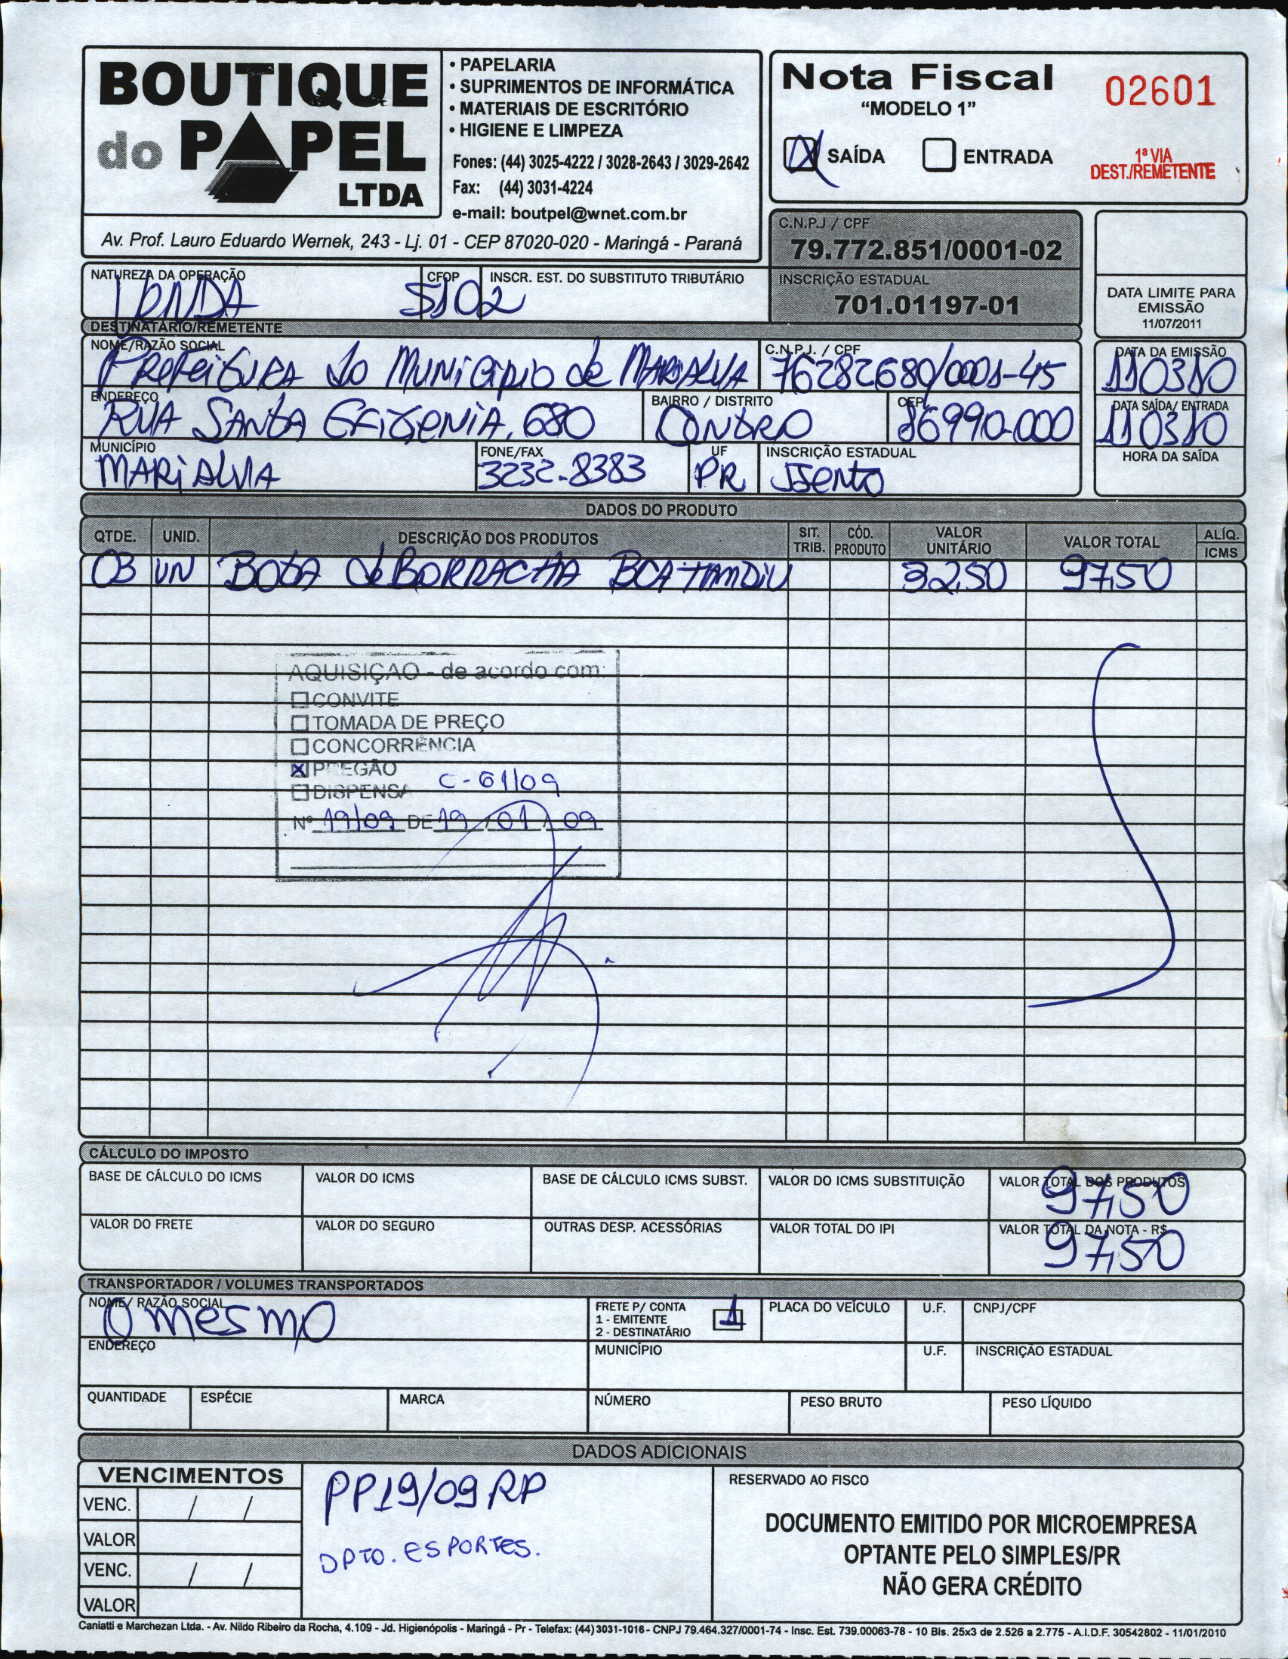 BOUTIQUE
do PAPEL
LTDA
• PAPELARIA
• SUPRIMENTOS DE INFORMÁTICA
• MATERIAIS DE ESCRITÓRIO
• HIGIENE E LIMPEZA
Fones: (44) 3025-4222 / 3028-2643 / 3029-2642
Fax: (44) 3031-4224
e-mail: boutpel@wnet.com.br
Av. Prof. Lauro Eduardo Wernek, 243 - Lj. 01 - CEP 87020-020 - Maringá - Paraná
Nota Fiscal
"MODELO 1"
02601
X SAÍDA ENTRADA
1ª VIA
DEST./REMETENTE
C.N.P.J / CPF
79.772.851/0001-02
INSCRIÇÃO ESTADUAL
701.01197-01
DATA LIMITE PARA
EMISSÃO
11/07/2011
NATUREZA DA OPERAÇÃO CFOP INSCR. EST. DO SUBSTITUTO TRIBUTÁRIO
5102
DESTINATÁRIO/REMETENTE
NOME/RAZÃO SOCIAL C.N.P.J. / CPF DATA DA EMISSÃO
PREFEITURA do MUNICIPIO de MARIALVA 76282680/0001-45 110310
ENDEREÇO BAIRRO / DISTRITO CEP DATA SAÍDA/ ENTRADA
RUA SANTA EFIGENIA, 680 CENTRO 86990-000 110310
MUNICÍPIO FONE/FAX UF INSCRIÇÃO ESTADUAL HORA DA SAÍDA
MARIALVA 3232-8383 PR Isento
DADOS DO PRODUTO
QTDE. UNID. DESCRIÇÃO DOS PRODUTOS SIT. TRIB. CÓD. PRODUTO VALOR UNITÁRIO VALOR TOTAL ALÍQ. ICMS
03 UN BOTA de BORRACHA 32,50 97,50
AQUISIÇAO - de acordo com:
CONVITE
TOMADA DE PREÇO
CONCORRÊNCIA
X PREGÃO
DISPENSA C-61/09
Nº 19/09 DE 19 / 01 / 09
CÁLCULO DO IMPOSTO
BASE DE CÁLCULO DO ICMS VALOR DO ICMS BASE DE CÁLCULO ICMS SUBST. VALOR DO ICMS SUBSTITUIÇÃO VALOR TOTAL DOS PRODUTOS
97,50
VALOR DO FRETE VALOR DO SEGURO OUTRAS DESP. ACESSÓRIAS VALOR TOTAL DO IPI VALOR TOTAL DA NOTA - R$
97,50
TRANSPORTADOR / VOLUMES TRANSPORTADOS
NOME/ RAZÃO SOCIAL FRETE P/ CONTA PLACA DO VEÍCULO U.F. CNPJ/CPF
O mesmo 1 - EMITENTE 1
2 - DESTINATÁRIO
ENDEREÇO MUNICÍPIO U.F. INSCRIÇÃO ESTADUAL
QUANTIDADE ESPÉCIE MARCA NÚMERO PESO BRUTO PESO LÍQUIDO
DADOS ADICIONAIS
VENCIMENTOS
VENC. / /
VALOR
VENC. / /
VALOR
PP19/09 RP
DPTO. ESPORTES.
RESERVADO AO FISCO
DOCUMENTO EMITIDO POR MICROEMPRESA
OPTANTE PELO SIMPLES/PR
NÃO GERA CRÉDITO
Caniatti e Marchezan Ltda. - Av. Nildo Ribeiro da Rocha, 4.109 - Jd. Higienópolis - Maringá - Pr - Telefax: (44) 3031-1016 - CNPJ 79.464.327/0001-74 - Insc. Est. 739.00063-78 - 10 Bls. 25x3 de 2.526 a 2.775 - A.I.D.F. 30542802 - 11/01/2010